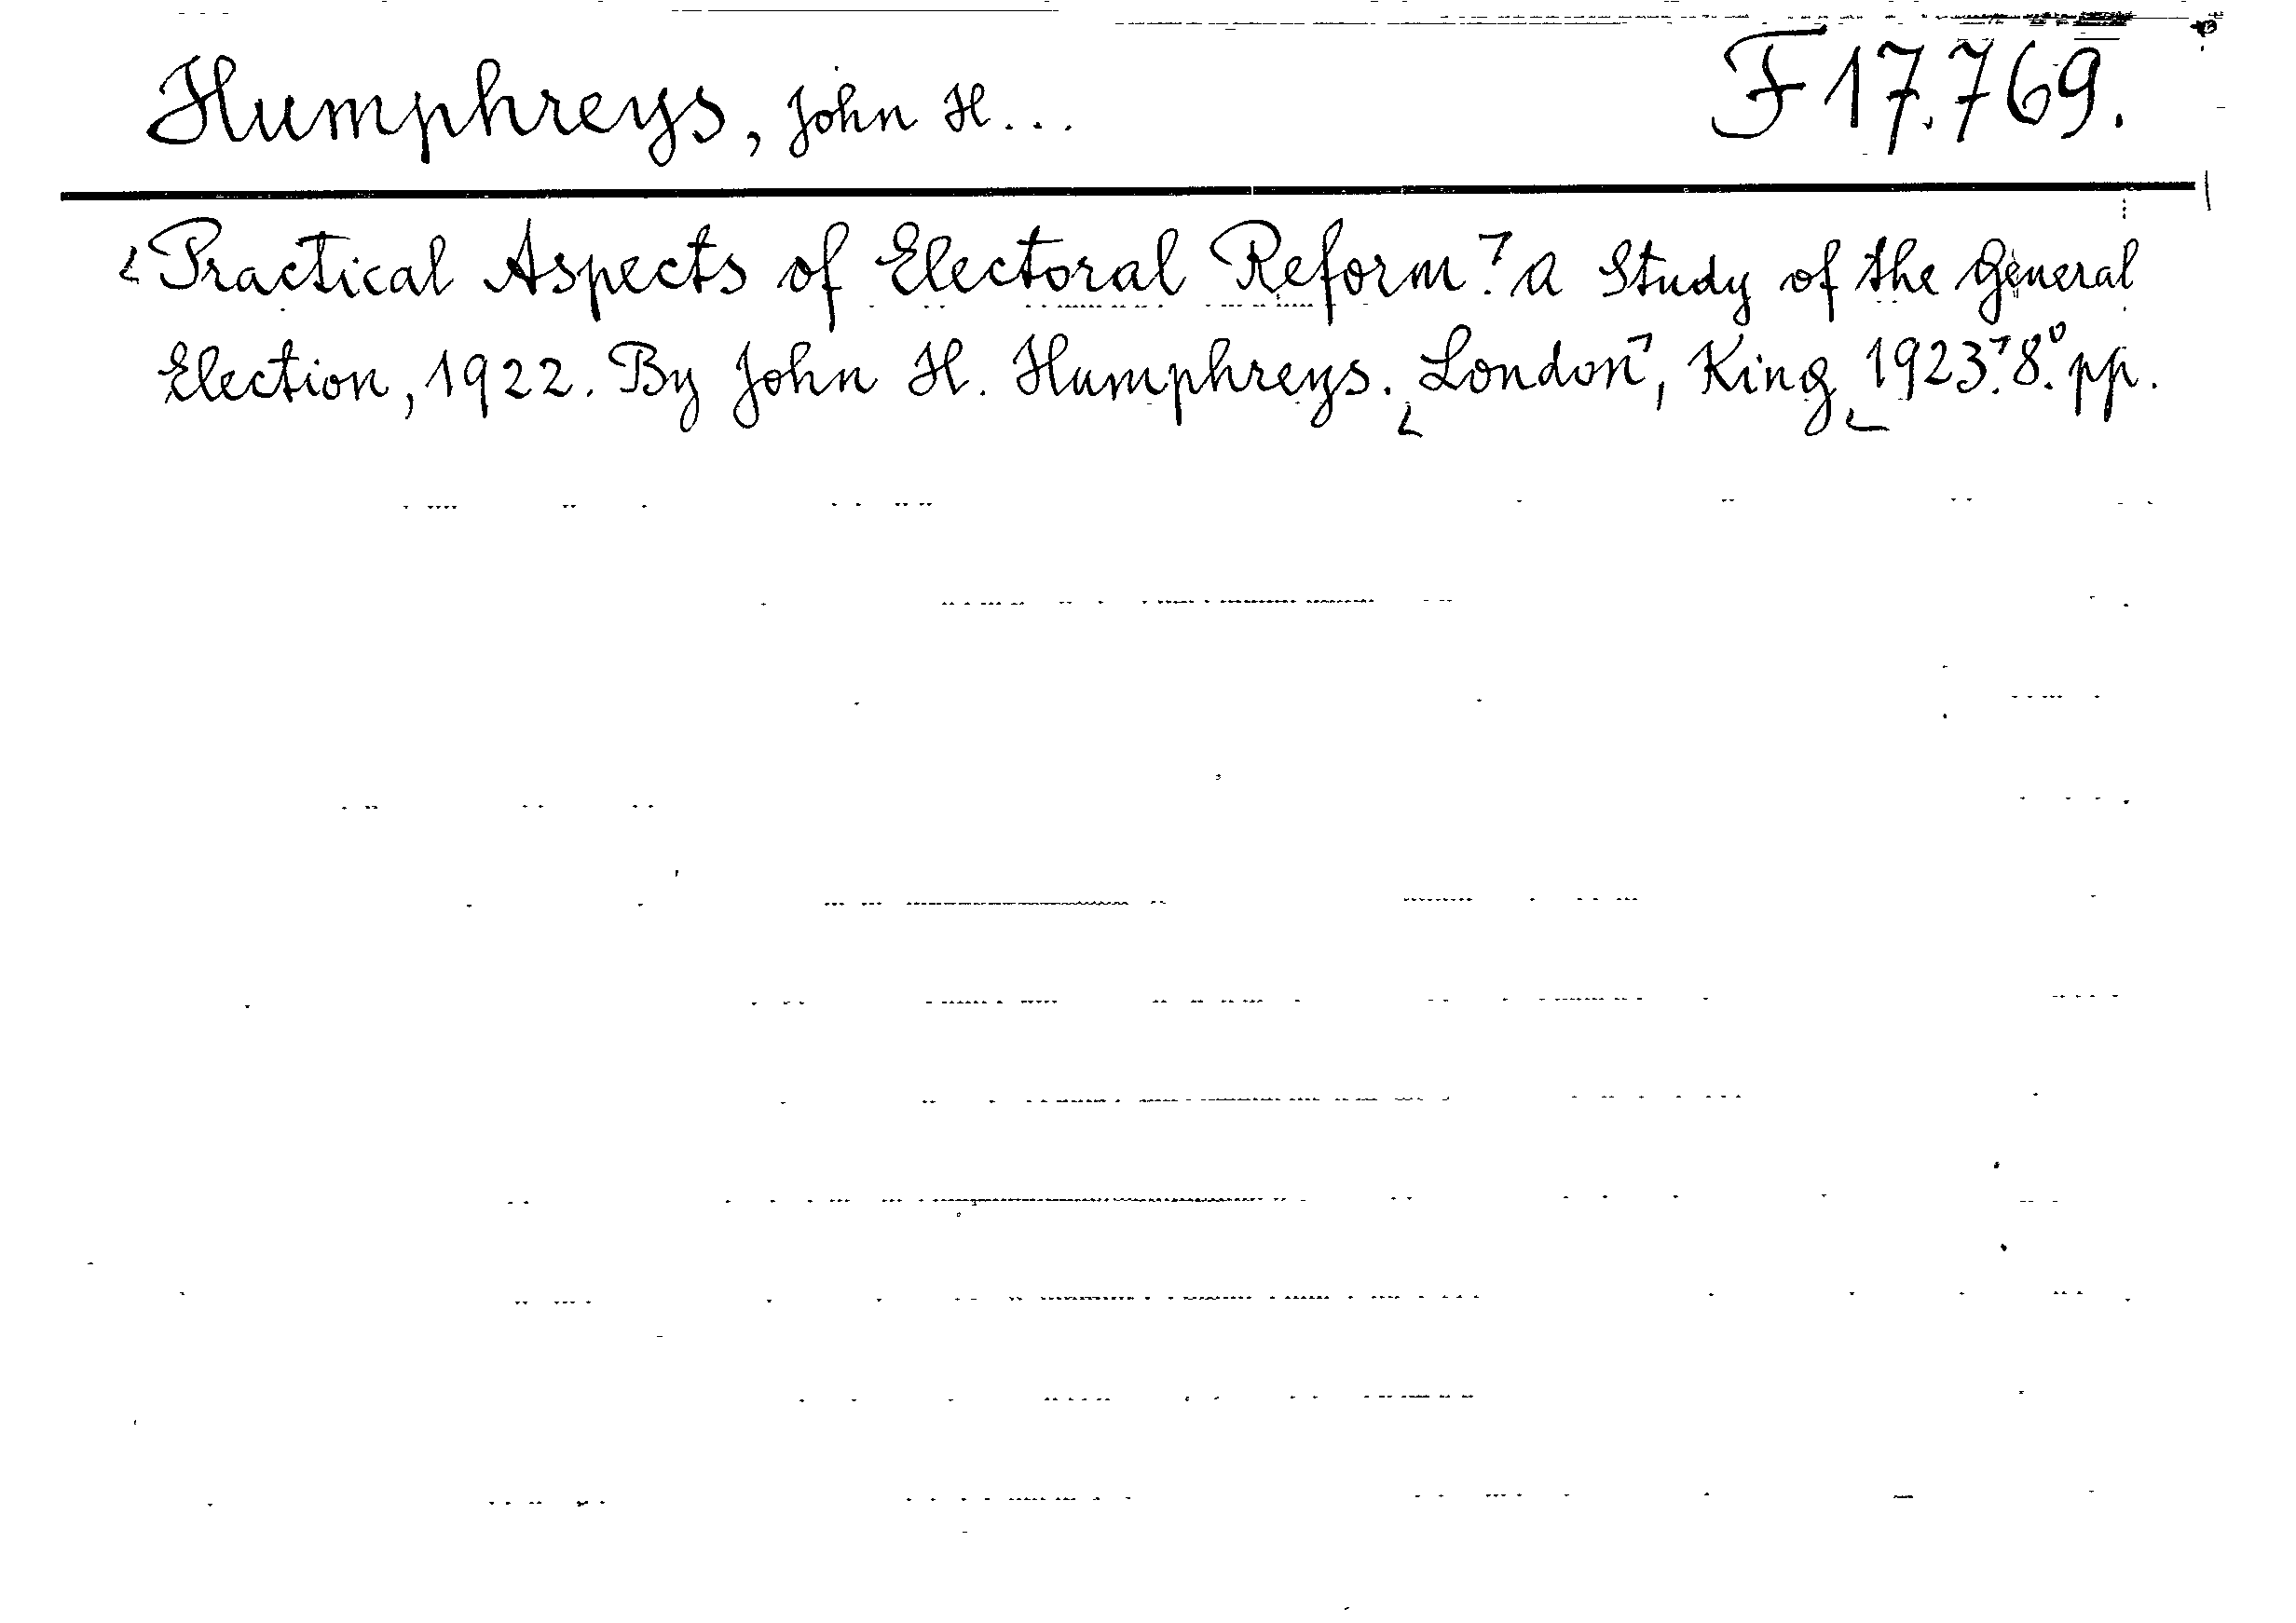 Humphreys, John H... F 17.769.
⌞Practical Aspects of Electoral Reform⌝. A Study of the General
Election, 1922. By John H. Humphreys. ⌞London⌝, King⌞ 1923⌝. 8.° pp.